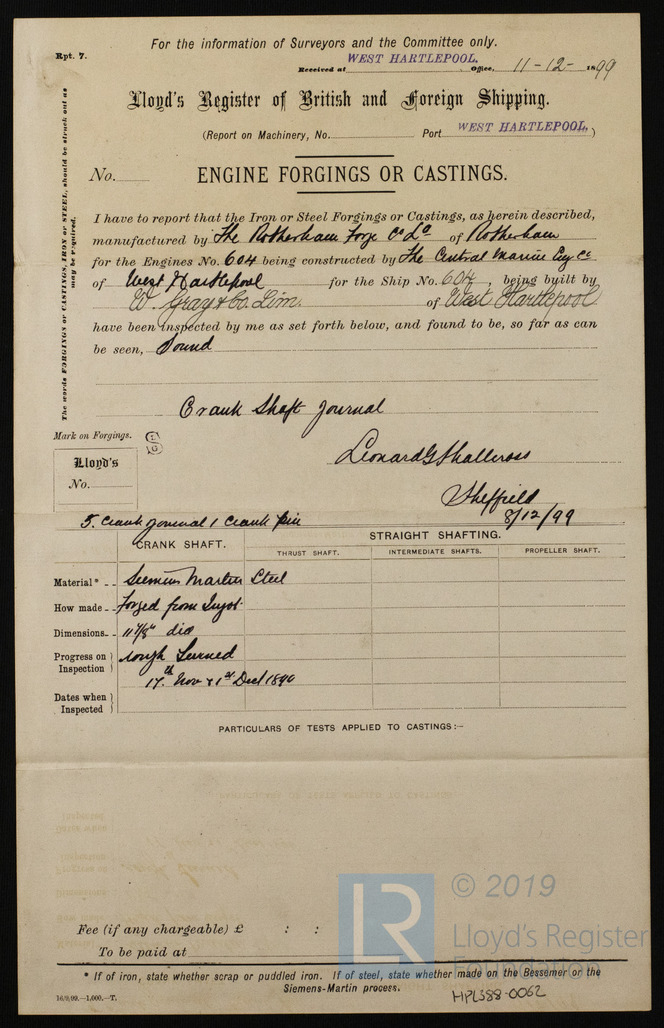 For the information of Surveyors and the Committee only.
Rpt. 7.
Received at WEST HARTLEPOOL. Office, 11-12- 1899
Lloyd's Register of British and Foreign Shipping.
(Report on Machinery, No. Port WEST HARTLEPOOL.)
No.
ENGINE FORGINGS OR CASTINGS.
The words FORGINGS or CASTINGS, IRON or STEEL, should be struck out as
may be required.
I have to report that the Iron or Steel Forgings or Castings, as herein described,
manufactured by The Rotherham Forge Co Ld of Rotherham
for the Engines No. 604 being constructed by The Central Marine Eng Co
of West Hartlepool for the Ship No. 604, being built by
W. Gray & Co. Lim. of West Hartlepool
have been inspected by me as set forth below, and found to be, so far as can
be seen, Sound
Crank Shaft Journal
Mark on Forgings.
Lloyd's
No.
Leonard G Shallcross
Sheffield
8/12/99
5. Crank Journal 1 Crank Pin
CRANK SHAFT. STRAIGHT SHAFTING.
THRUST SHAFT. INTERMEDIATE SHAFTS. PROPELLER SHAFT.
Material* Siemens Martin Steel
How made Forged from Ingot
Dimensions 11 7/8" dia
Progress on Inspection rough turned
Dates when Inspected 17th Nov & 1st Dec 1899
PARTICULARS OF TESTS APPLIED TO CASTINGS:—
Fee (if any chargeable) £ : :
To be paid at
* If of iron, state whether scrap or puddled iron. If of steel, state whether made on the Bessemer or the
Siemens-Martin process.
16/9/99.—1,000.—T.
HPL388-0062
LR
© 2019
Lloyd's Register
Foundation